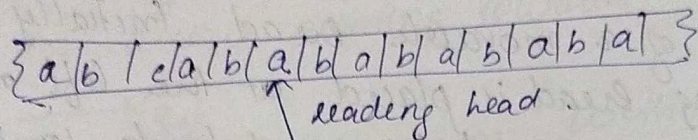 { a | b | c | a | b | a | b | a | b | a | b | a | b | a | }
reading head.